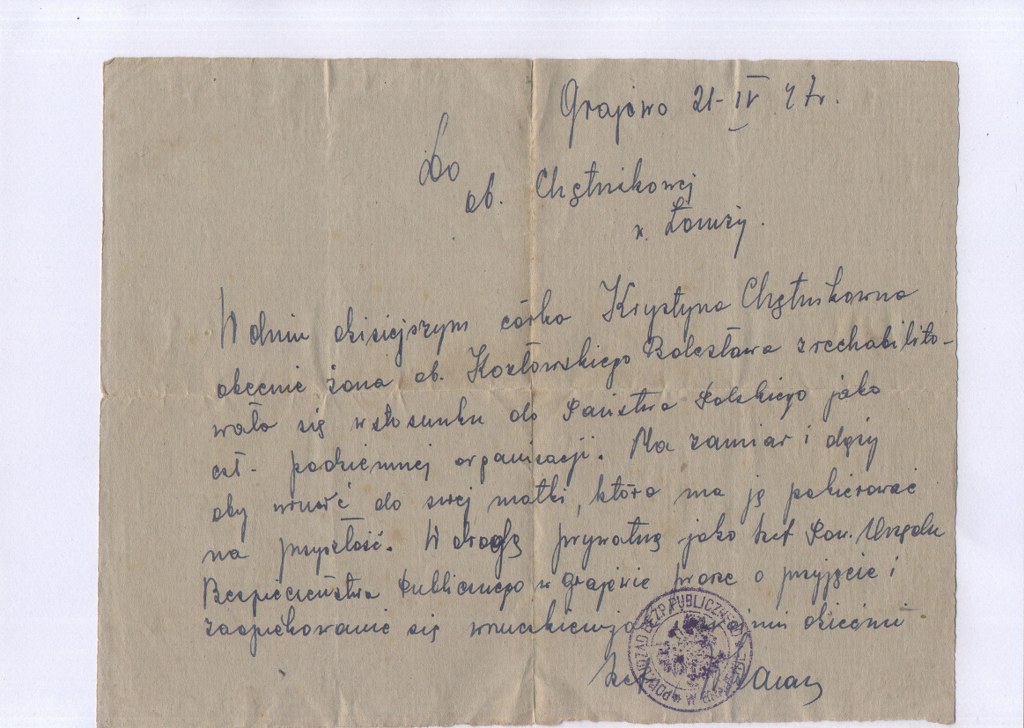 Grajewo 21-IV 47r.
Do
ob. Chętnikowej
w. Łomży.
W dniu dzisiejszym córka Krystyna Chętnikowna
obecnie żona ob. Kozłowskiego Bolesława zrechabilito-
wała się wstosunku do Państwa Polskiego jako
czł. podziemnej organizacji. Ma zamiar i dąży
aby wrucić do swej matki, która ma ją pokierować
na przyszłość. W drogę prywatną jako szef Pow. Urzędu
Bezpieczeństwa Publicznego w Grajewie proszę o przyjęcie i
zaopiekowanie się dziećmi
Szef
POW. URZĄD BEZP. PUBLICZNEGO W GRAJEWIE